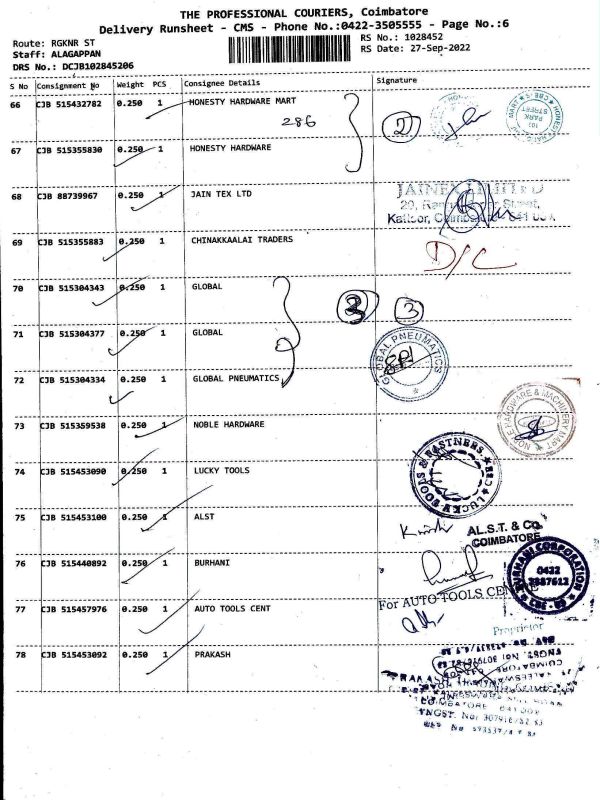 THE PROFESSIONAL COURIERS, Coimbatore
Delivery Runsheet - CMS - Phone No.:0422-3505555 - Page No.:6
Route: RGKNR ST
Staff: ALAGAPPAN
DRS No.: DCJB102845206
RS No.: 1028452
RS Date: 27-Sep-2022
S No Consignment No Weight PCS Consignee Details Signature
66 CJB 515432782 0.250 1 HONESTY HARDWARE MART
286 2
67 CJB 515355830 0.250 1 HONESTY HARDWARE
68 CJB 88739967 0.250 1 JAIN TEX LTD
JAINEX LIMITED
69 CJB 515355883 0.250 1 CHINAKKAALAI TRADERS
D/C
70 CJB 515304343 0.250 1 GLOBAL
3
71 CJB 515304377 0.250 1 GLOBAL
GLOBAL PNEUMATICS
72 CJB 515304334 0.250 1 GLOBAL PNEUMATICS
73 CJB 515359538 0.250 1 NOBLE HARDWARE
NOBLE HARDWARE & MACHINERY MART
74 CJB 515453090 0.250 1 LUCKY TOOLS
LUCKY TOOLS & FASTNERS
75 CJB 515453100 0.250 1 ALST
AL.S.T. & Co.
COIMBATORE
76 CJB 515440892 0.250 1 BURHANI
BURHANI CORPORATION
0432
77 CJB 515457976 0.250 1 AUTO TOOLS CENT
For AUTO TOOLS CENT
Proprietor
78 CJB 515453092 0.250 1 PRAKASH